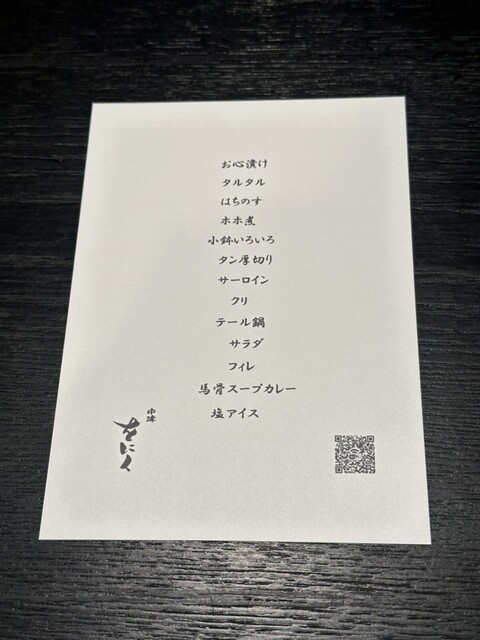 お心漬け
タルタル
はちのす
ホホ煮
小鉢いろいろ
タン厚切り
サーロイン
クリ
テール鍋
サラダ
フィレ
馬骨スープカレー
塩アイス
をにく